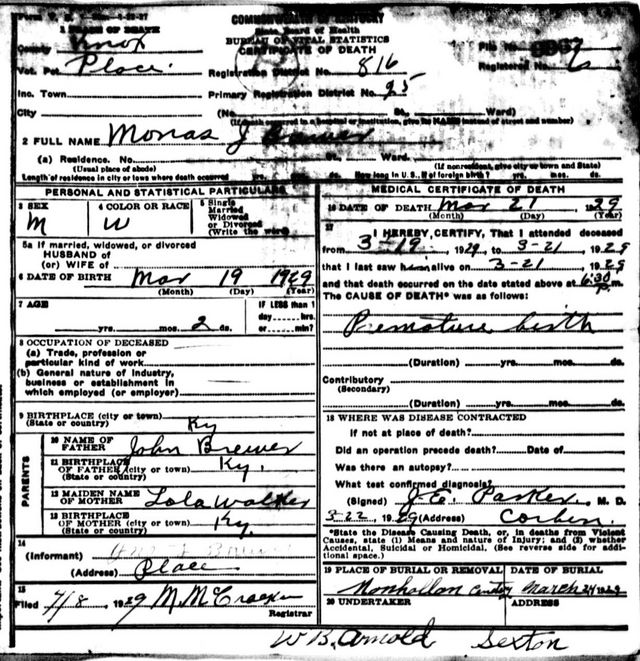 COMMONWEALTH OF KENTUCKY
1 PLACE OF DEATH
State Board of Health
BUREAU OF VITAL STATISTICS
CERTIFICATE OF DEATH
County Knox
File No.
Vot. Pct. Place
Registration District No. 816
Registered No. 6
Inc. Town
Primary Registration District No. 95
City
(No. St., Ward)
(If death occurred in a hospital or institution, give its NAME instead of street and number)
2 FULL NAME Monas J
(a) Residence. No. St. Ward.
(Usual place of abode)
(If nonresident, give city or town and State)
Length of residence in city or town where death occurred yrs. mos. ds. How long in U. S. if of foreign birth? yrs. mos. ds.
PERSONAL AND STATISTICAL PARTICULARS
3 SEX
M
4 COLOR OR RACE
W
5 Single
Married
Widowed
or Divorced
(Write the word)
5a If married, widowed, or divorced
HUSBAND of
(or) WIFE of
6 DATE OF BIRTH Mar 19 1929
(Month) (Day) (Year)
7 AGE
yrs. mos. 2 ds.
IF LESS than 1
day hrs.
or min?
8 OCCUPATION OF DECEASED
(a) Trade, profession or
particular kind of work
(b) General nature of industry,
business or establishment in
which employed (or employer)
9 BIRTHPLACE (city or town)
(State or country) Ky
PARENTS
10 NAME OF
FATHER John Brewer
11 BIRTHPLACE
OF FATHER (city or town)
(State or country) Ky.
12 MAIDEN NAME
OF MOTHER Lola Walker
13 BIRTHPLACE
OF MOTHER (city or town)
(State or country) Ky.
14
(Informant)
(Address) Place
15
Filed 7/8, 1929 M McCracken
Registrar
MEDICAL CERTIFICATE OF DEATH
16 DATE OF DEATH Mar 21 1929
(Month) (Day) (Year)
17
I HEREBY CERTIFY, That I attended deceased
from 3-19, 1929 to 3-21, 1929
that I last saw him alive on 3-21, 1929
and that death occurred on the date stated above at 6:30 P. m.
The CAUSE OF DEATH* was as follows:
Premature birth
(Duration) yrs. mos. ds.
Contributory
(Secondary)
(Duration) yrs. mos. ds.
18 WHERE WAS DISEASE CONTRACTED
if not at place of death?
Did an operation precede death? Date of
Was there an autopsy?
What test confirmed diagnosis?
(Signed) J.E. Parker M. D.
3-22, 1929 (Address) Corbin
*State the Disease Causing Death, or, in deaths from Violent
Causes, state (1) Means and nature of Injury; and (2) whether
Accidental, Suicidal or Homicidal. (See reverse side for addi-
tional space.)
19 PLACE OF BURIAL OR REMOVAL
DATE OF BURIAL
March 24 1929
20 UNDERTAKER
ADDRESS
W B. Arnold Sexton